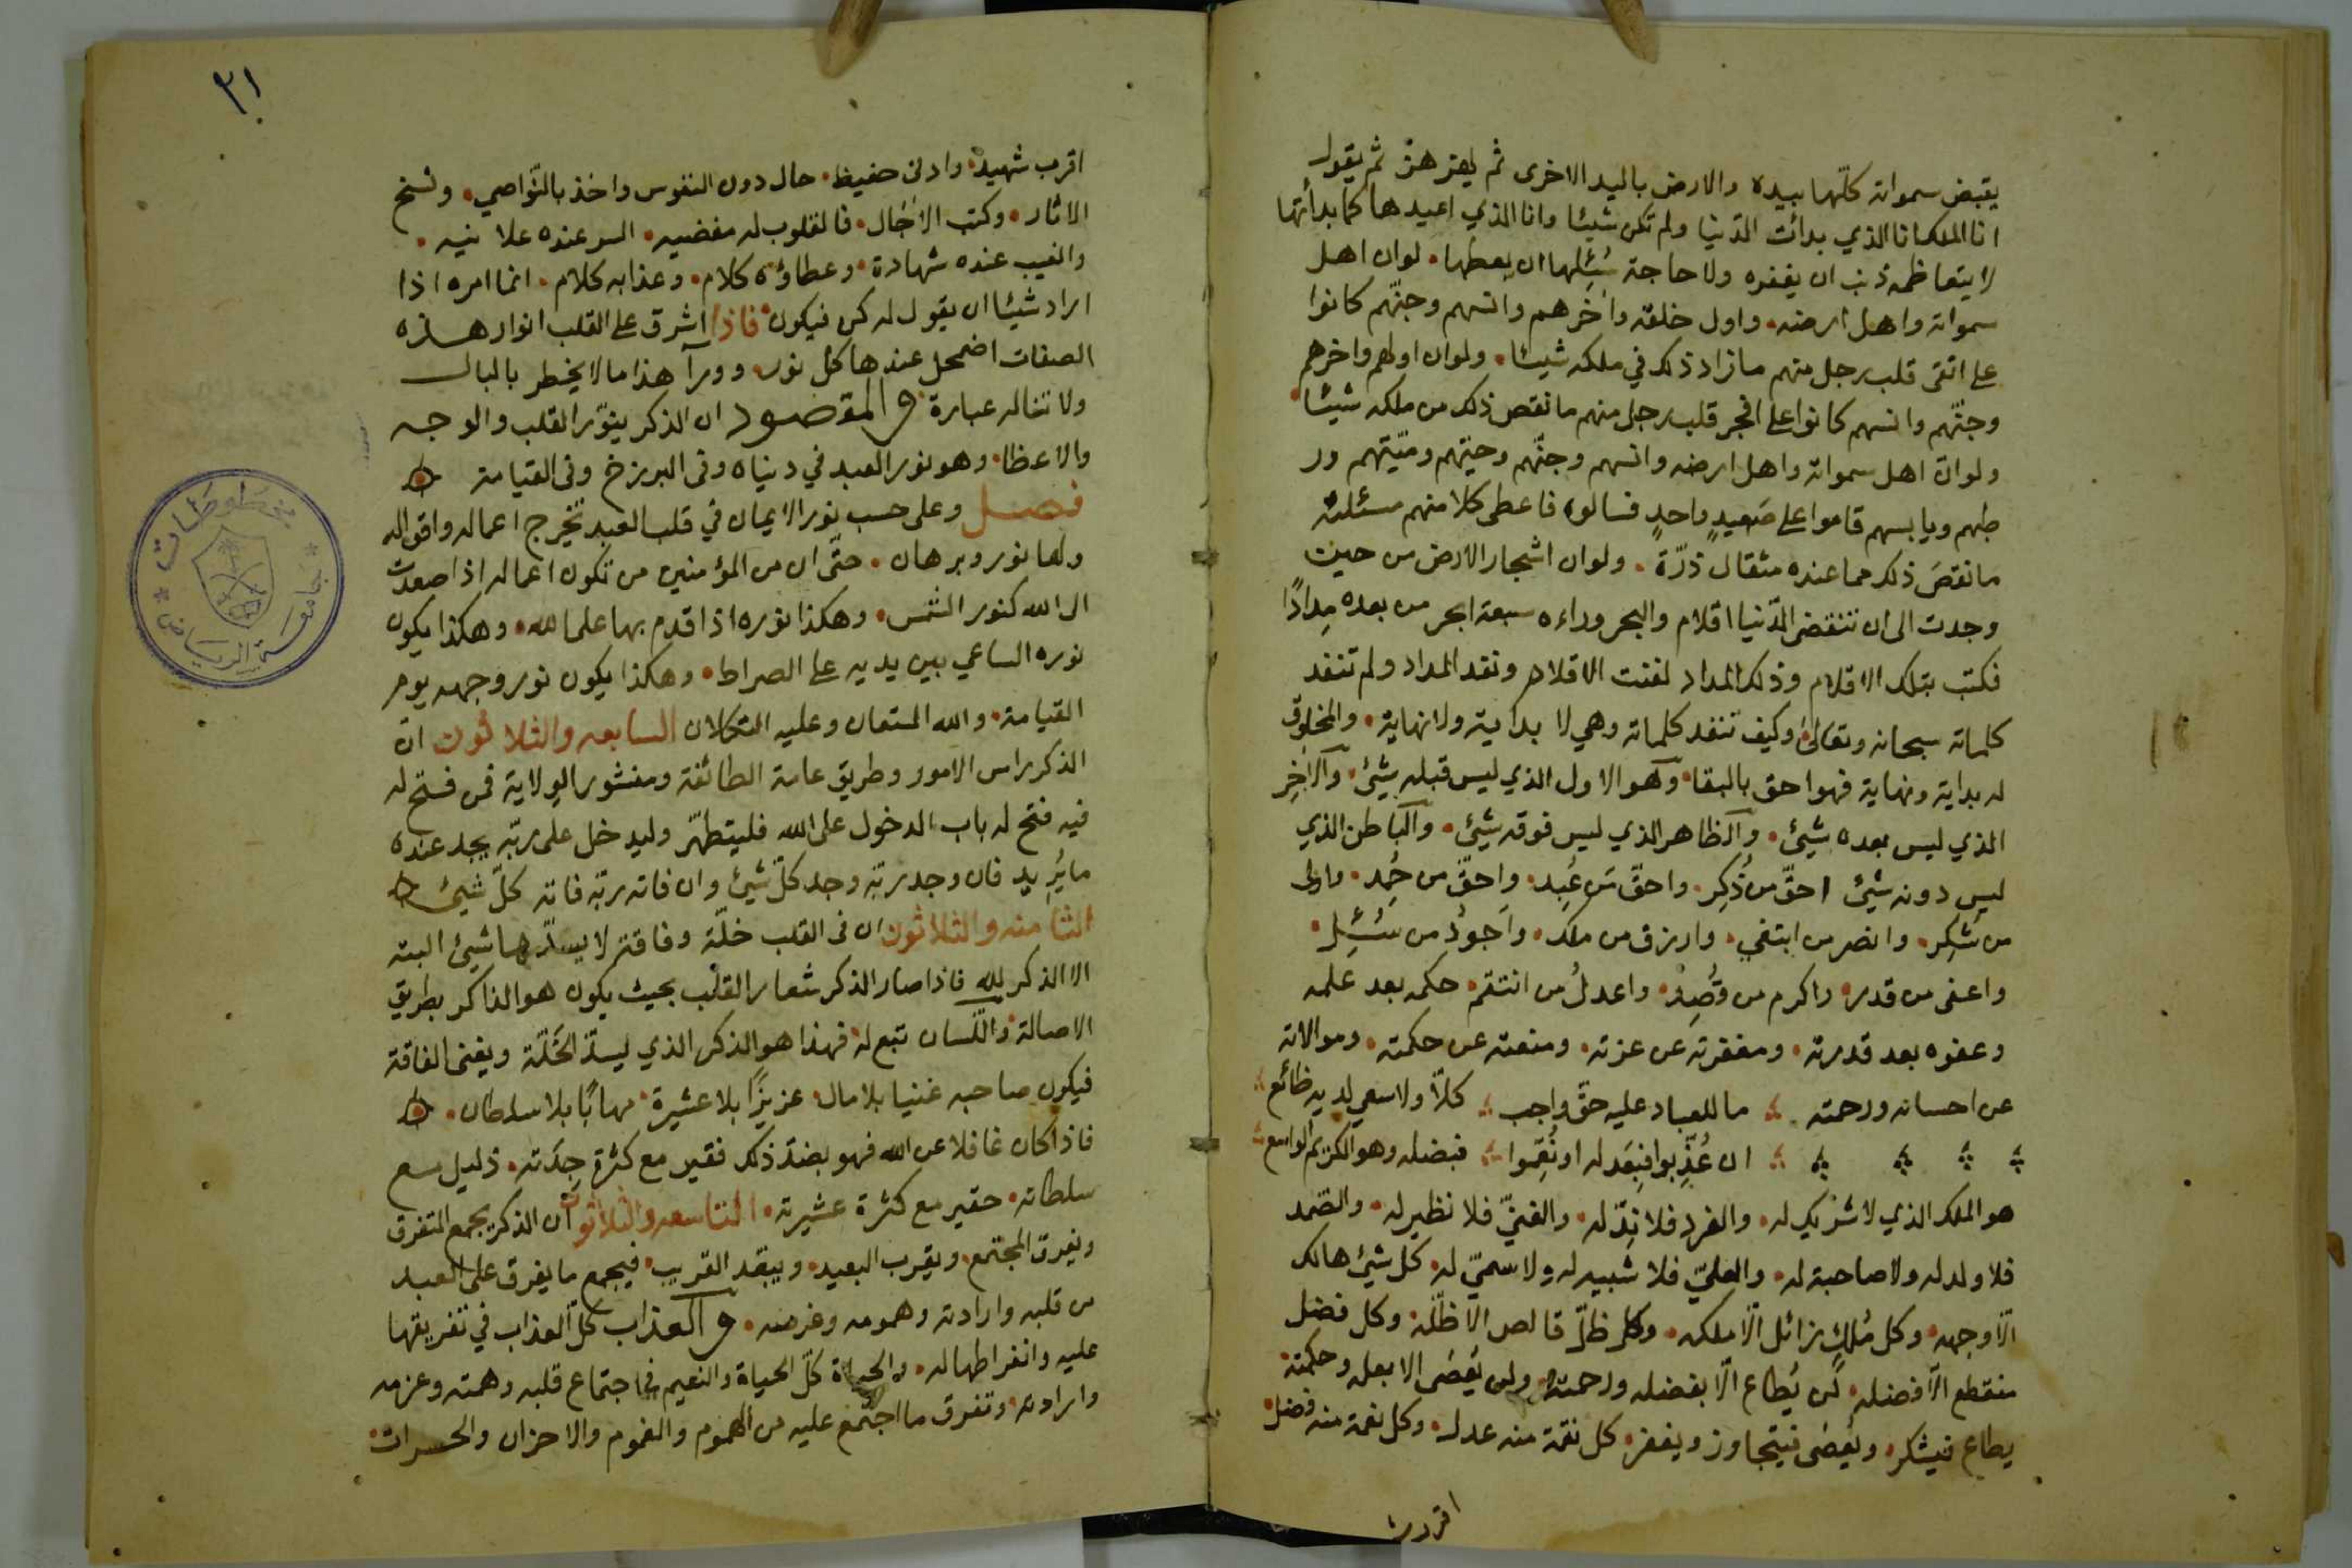 يقبض سمواته كلّها بيده والارض باليد الاخرى ثم يهزهنّ ثم يقول
انا الملك انا الذي بدأت الدّنيا ولم تكن شيئا وانا الذي اعيدها كما بدأتها
لا يتعاظمه ذنب ان يغفره ولا حاجة سُئِلها ان يعطها. لو ان اهل
سمواته واهل ارضه. واول خلقه واٰخرهم وانسهم وجنّهم كانوا
على اتقى قلب رجل منهم ما زاد ذلك في ملكه شيئا. ولو ان اولهم واخرهم
وجنّهم وانسهم كانوا على افجر قلب رجل منهم ما نقص ذلك من ملكه شيئا.
ولو انّ اهل سمواته واهل ارضه وانسهم وجنّهم وحيّهم وميّتهم ور
طبهم ويابسهم قاموا على صَعيدٍ واحدٍ فسالوه فاعطى كلا منهم مسئلته
ما نقصَ ذلك مما عنده مثقال ذرّة. ولو ان اشجار الارض من حين
وجدت الى ان تنقضى الدّنيا اقلام والبحر وراءه سبعة ابحر من بعده مِدادًا
فكتب بتلك الاقلام وذلك المداد لفنت الاقلام ونفد المداد ولم تنفد
كلماته سبحانه وتعالىٰ. وكيف تنفد كلماته وهي لا بداية ولا نهاية. والمخلوق
له بداية ونهاية فهو احق بالبقا. وهو الاول الذي ليس قبله شيئ. والآخِر
الذي ليس بعده شيئ. والظاهر الذي ليس فوقه شيئ. والباطن الذي
ليس دونه شيئ احقّ من ذُكِر. واحقّ من عُبِد. واحقّ من حُمِد. واولى
من شُكِر. وانصر من ابتغي. وارزق من ملك. واَجودُ من سُئِل.
واعفى من قدر. واكرم من قُصِد. واعدلُ من انتقم. حكمه بعد علمه
وعفوه بعد قدرته. ومغفرته عن عزته. ومنعته عن حكمته. وموالاته
عن احسانه ورحمته. ما للعباد عليه حقّ واجب كلاّ ولا سعي لديه ضائع
ان عُذِّبوا فبِعَدله او نُعِّموا فبفضله وهو الكريم الواسع
هو الملك الذي لا شريك له. والفرد فلا نِدّ له. والغنيّ فلا نظير له. والصّمد
فلا ولد له ولا صاحبة له. والعليّ فلا شبيه له ولا سميّ له. كل شيئ هالك
الّا وجهه. وكل مُلكٍ زائل الّا ملكه. وكل ظلّ قالص الا ظلّه. وكل فضل
منقطع الّا فضله. لَن يُطاع الّا بفضله ورحمته. ولن يُعصٰى الا بعلمه وحكمته.
يطاع فيشكر. ويُعصٰى فيتجاوز ويغفر. كل نقمة منه عدل. وكل نعمة منه فضل.
اقرب
٣١
اقرب شهيد. وادنى حفيظ. حال دون النفوس واخذ بالنّواصي. ونسخ
الاثار. وكتب الاٰجال. فالقلوب له مفضيه. السر عنده علانيه.
والغيب عنده شهادة. وعطاؤه كلام. وعذابه كلام. انما امره اذا
اراد شيئا ان يقول له كن فيكون. فاذا اشرق على القلب انوار هذه
الصفات اضمحل عندها كل نور. وورآ هذا ما لا يخطر بالبال
ولا تناله عبارة. والمقصود ان الذكر ينوّر القلب والوجه
والاعظا. وهو نور العبد في دنياه وفى البرزخ وفى القيامة
فصل وعلى حسب نور الايمان في قلب العبد تخرج اعماله واقواله
ولها نور وبرهان. حتّى ان من المؤمنين من تكون اعماله اذا صعدت
الى الله كنور الشمس. وهكذا نوره اذا قدم بها على الله. وهكذا يكون
نوره الساعي بين يديه على الصراط. وهكذا يكون نور وجهه يوم
القيامة. والله المستعان وعليه التكلان السابعه والثلاثون انّ
الذكر راس الامور وطريق عامة الطائفة ومنشور الولاية فمن فتح له
فيه فتح له باب الدخول على الله فليتطهّر وليدخل على ربّه يجد عنده
ما يُريد فان وجد ربّه وجد كلّ شيئ وان فاته ربّه فاته كلّ شيئ
الثامنه والثلاثون ان فى القلب خلّة وفاقة لا يسدّها شيئ البته
الا الذكر لله فاذا صار الذكر شعار القلب بحيث يكون هو الذاكر بطريق
الاصالة. واللّسان تبع له. فهذا هو الذكر الذي ليسدّ الخَلّة ويغنى الفاقة
فيكون صاحبه غنيا بلا مال. عزيزًا بلا عشيرة. مهابًا بلا سلطان.
فاذا كان غافلا عن الله فهو بضدّ ذلك فقير مع كثرة جِدَته. ذليل مع
سلطانه. حقير مع كثرة عشيرته. التاسعه والثلاثون ان الذكر يجمع المتفرق
ويفرق المجتمع. ويقرب البعيد. ويبعّد القريب. فيجمع ما يفرق على العبد
من قلبه وارادته وهمومه وغرضه. والعذاب كل العذاب في تفريقها
عليه وانفراطها له. والحياة كلّ الحياة والنعيم في اجتماع قلبه وهمته وعزمه
وارادته. وتفرق ما اجتمع عليه من الهموم والغموم والاحزان والحسرات.
مخطوطات
جامعة الرياض